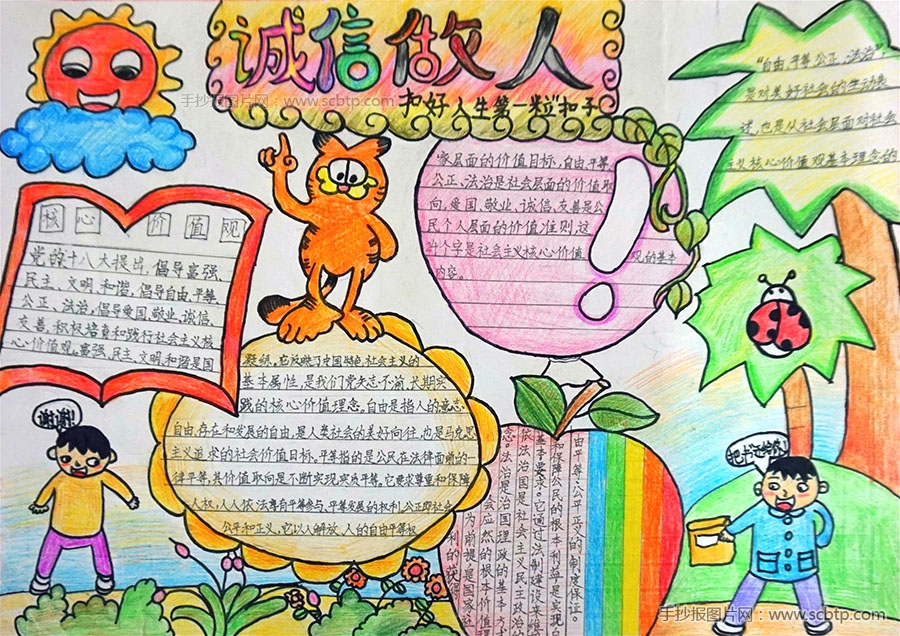 诚信做人
扣好人生第一粒"扣子
手抄报图片网：www.scbtp.com
"自由、平等、公正、法治",
是对美好社会的生动表
述,也是从社会层面对社会
主义核心价值观基本理念的
核心价值观
党的十八大提出,倡导富强、
民主、文明、和谐,倡导自由、平等、
公正、法治,倡导爱国、敬业、诚信、
友善,积极培育和践行社会主义核
心价值观。富强、民主、文明、和谐是国
家层面的价值目标,自由、平等、
公正、法治是社会层面的价值取
向,爱国、敬业、诚信、友善是公
民个人层面的价值准则,这
个字是社会主义核心价值观的基本
内容。
凝练,它反映了中国特色社会主义的
基本属性,是我们党矢志不渝、长期实
践的核心价值理念。自由是指人的意志
自由、存在和发展的自由,是人类社会的美好向往,也是马克思
主义追求的社会价值目标。平等指的是公民在法律面前的一
律平等,其价值取向是不断实现实质平等。它要求尊重和保障
人权,人人依法享有平等参与、平等发展的权利。公正即社会
公平和正义,它以人解放、人的自由平等权
利的获得
为前提,是国家、社
会应然的根本价值理
念。法治是治国理政的基本方式,
依法治国是社会主义民主政治的
基本要求。它通过法制建设来维
和保障公民的根本利益,是实现自
由平等、公平正义的制度保证。
谢谢!
把书还给你!
手抄报图片网：www.scbtp.com